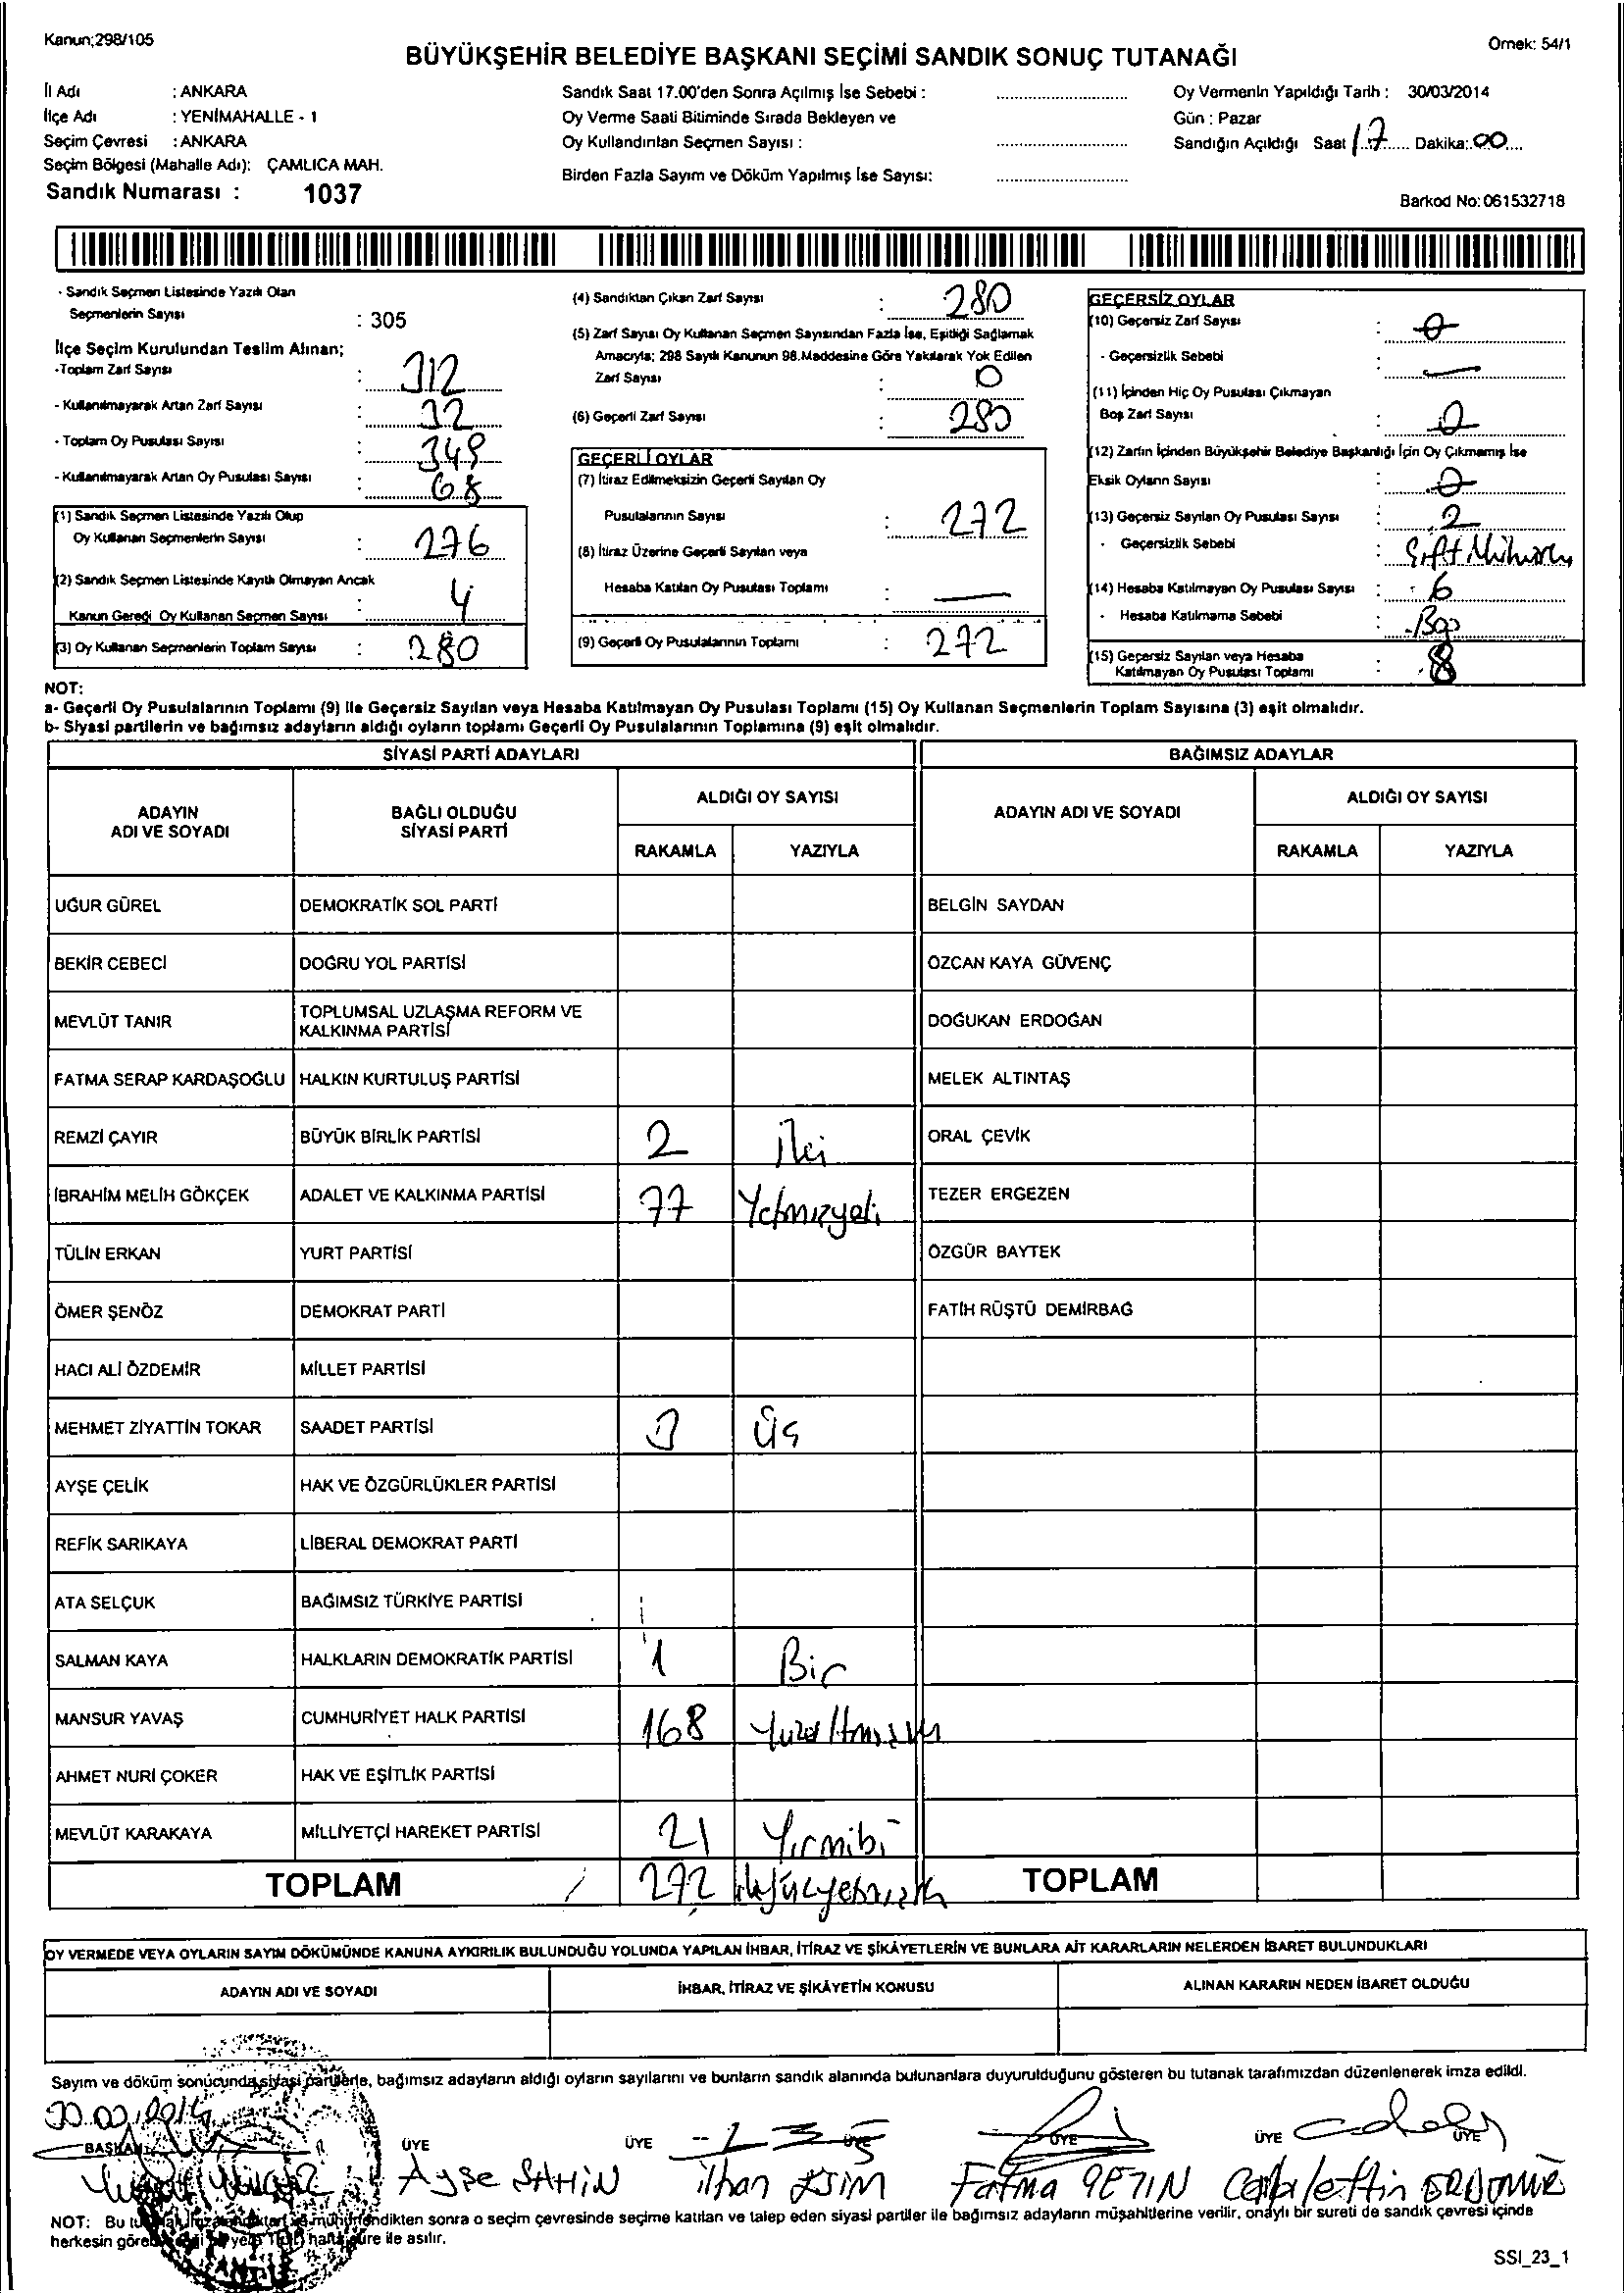 Kanun;298/105
Örnek: 54/1
BÜYÜKŞEHİR BELEDİYE BAŞKANI SEÇİMİ SANDIK SONUÇ TUTANAĞI
İl Adı : ANKARA
İlçe Adı : YENİMAHALLE - 1
Seçim Çevresi : ANKARA
Seçim Bölgesi (Mahalle Adı): ÇAMLICA MAH.
Sandık Numarası : 1037
Sandık Saat 17.00'den Sonra Açılmış İse Sebebi :
Oy Verme Saati Bitiminde Sırada Bekleyen ve
Oy Kullandırılan Seçmen Sayısı :
Birden Fazla Sayım ve Döküm Yapılmış İse Sayısı:
Oy Vermenin Yapıldığı Tarih : 30/03/2014
Gün : Pazar
Sandığın Açıldığı Saat 17 Dakika: 00
Barkod No: 061532718
- Sandık Seçmen Listesinde Yazılı Olan
Seçmenlerin Sayısı : 305
İlçe Seçim Kurulundan Teslim Alınan;
-Toplam Zarf Sayısı : 312
- Kullanılmayarak Artan Zarf Sayısı : 32
- Toplam Oy Pusulası Sayısı : 348
- Kullanılmayarak Artan Oy Pusulası Sayısı : 68
(1) Sandık Seçmen Listesinde Yazılı Olup
Oy Kullanan Seçmenlerin Sayısı : 276
(2) Sandık Seçmen Listesinde Kayıtlı Olmayan Ancak
Kanun Gereği Oy Kullanan Seçmen Sayısı : 4
(3) Oy Kullanan Seçmenlerin Toplam Sayısı : 280
(4) Sandıktan Çıkan Zarf Sayısı : 280
(5) Zarf Sayısı Oy Kullanan Seçmen Sayısından Fazla İse, Eşitliği Sağlamak
Amacıyla; 298 Sayılı Kanunun 98.Maddesine Göre Yakılarak Yok Edilen
Zarf Sayısı : 0
(6) Geçerli Zarf Sayısı : 280
GEÇERLİ OYLAR
(7) İtiraz Edilmeksizin Geçerli Sayılan Oy
Pusulalarının Sayısı : 272
(8) İtiraz Üzerine Geçerli Sayılan veya
Hesaba Katılan Oy Pusulası Toplamı : —
(9) Geçerli Oy Pusulalarının Toplamı : 272
GEÇERSİZ OYLAR
(10) Geçersiz Zarf Sayısı : 0
- Geçersizlik Sebebi : —
(11) İçinden Hiç Oy Pusulası Çıkmayan
Boş Zarf Sayısı : 0
(12) Zarfın İçinden Büyükşehir Belediye Başkanlığı İçin Oy Çıkmamış İse
Eksik Oyların Sayısı : 0
(13) Geçersiz Sayılan Oy Pusulası Sayısı : 2
- Geçersizlik Sebebi : Çift
(14) Hesaba Katılmayan Oy Pusulası Sayısı : 6
- Hesaba Katılmama Sebebi : Boş
(15) Geçersiz Sayılan veya Hesaba
Katılmayan Oy Pusulası Toplamı : 8
NOT:
a- Geçerli Oy Pusulalarının Toplamı (9) ile Geçersiz Sayılan veya Hesaba Katılmayan Oy Pusulası Toplamı (15) Oy Kullanan Seçmenlerin Toplam Sayısına (3) eşit olmalıdır.
b- Siyasi partilerin ve bağımsız adayların aldığı oyların toplamı Geçerli Oy Pusulalarının Toplamına (9) eşit olmalıdır.
SİYASİ PARTİ ADAYLARI BAĞIMSIZ ADAYLAR
ADAYIN ADI VE SOYADI BAĞLI OLDUĞU SİYASİ PARTİ ALDIĞI OY SAYISI ADAYIN ADI VE SOYADI ALDIĞI OY SAYISI
RAKAMLA YAZIYLA RAKAMLA YAZIYLA
UĞUR GÜREL DEMOKRATİK SOL PARTİ BELGİN SAYDAN
BEKİR CEBECİ DOĞRU YOL PARTİSİ ÖZCAN KAYA GÜVENÇ
MEVLÜT TANIR TOPLUMSAL UZLAŞMA REFORM VE KALKINMA PARTİSİ DOĞUKAN ERDOĞAN
FATMA SERAP KARDAŞOĞLU HALKIN KURTULUŞ PARTİSİ MELEK ALTINTAŞ
REMZİ ÇAYIR BÜYÜK BİRLİK PARTİSİ 2 İki ORAL ÇEVİK
İBRAHİM MELİH GÖKÇEK ADALET VE KALKINMA PARTİSİ 77 Yetmişyedi TEZER ERGEZEN
TÜLİN ERKAN YURT PARTİSİ ÖZGÜR BAYTEK
ÖMER ŞENÖZ DEMOKRAT PARTİ FATİH RÜŞTÜ DEMİRBAĞ
HACI ALİ ÖZDEMİR MİLLET PARTİSİ
MEHMET ZİYATTİN TOKAR SAADET PARTİSİ 3 Üç
AYŞE ÇELİK HAK VE ÖZGÜRLÜKLER PARTİSİ
REFİK SARIKAYA LİBERAL DEMOKRAT PARTİ
ATA SELÇUK BAĞIMSIZ TÜRKİYE PARTİSİ
SALMAN KAYA HALKLARIN DEMOKRATİK PARTİSİ 1 Bir
MANSUR YAVAŞ CUMHURİYET HALK PARTİSİ 168
AHMET NURİ ÇOKER HAK VE EŞİTLİK PARTİSİ
MEVLÜT KARAKAYA MİLLİYETÇİ HAREKET PARTİSİ 21 Yirmibi
TOPLAM 272 TOPLAM
OY VERMEDE VEYA OYLARIN SAYIM DÖKÜMÜNDE KANUNA AYKIRILIK BULUNDUĞU YOLUNDA YAPILAN İHBAR, İTİRAZ VE ŞİKÂYETLERİN VE BUNLARA AİT KARARLARIN NELERDEN İBARET BULUNDUKLARI
ADAYIN ADI VE SOYADI İHBAR, İTİRAZ VE ŞİKÂYETİN KONUSU ALINAN KARARIN NEDEN İBARET OLDUĞU
Sayım ve döküm sonucunda siyasi partilerle, bağımsız adayların aldığı oyların sayılarını ve bunların sandık alanında bulunanlara duyurulduğunu gösteren bu tutanak tarafımızdan düzenlenerek imza edildi.
BAŞKAN ÜYE ÜYE ÜYE ÜYE ÜYE ÜYE
Ayşe ŞAHİN İlhan Fatma ÇETİN
NOT: Bu tutanak imzalandıktan ve mühürlendikten sonra o seçim çevresinde seçime katılan ve talep eden siyasi partiler ile bağımsız adayların müşahitlerine verilir, onaylı bir sureti de sandık çevresi içinde
herkesin görebileceği bir yere 1 (bir) hafta süre ile asılır.
SSI_23_1